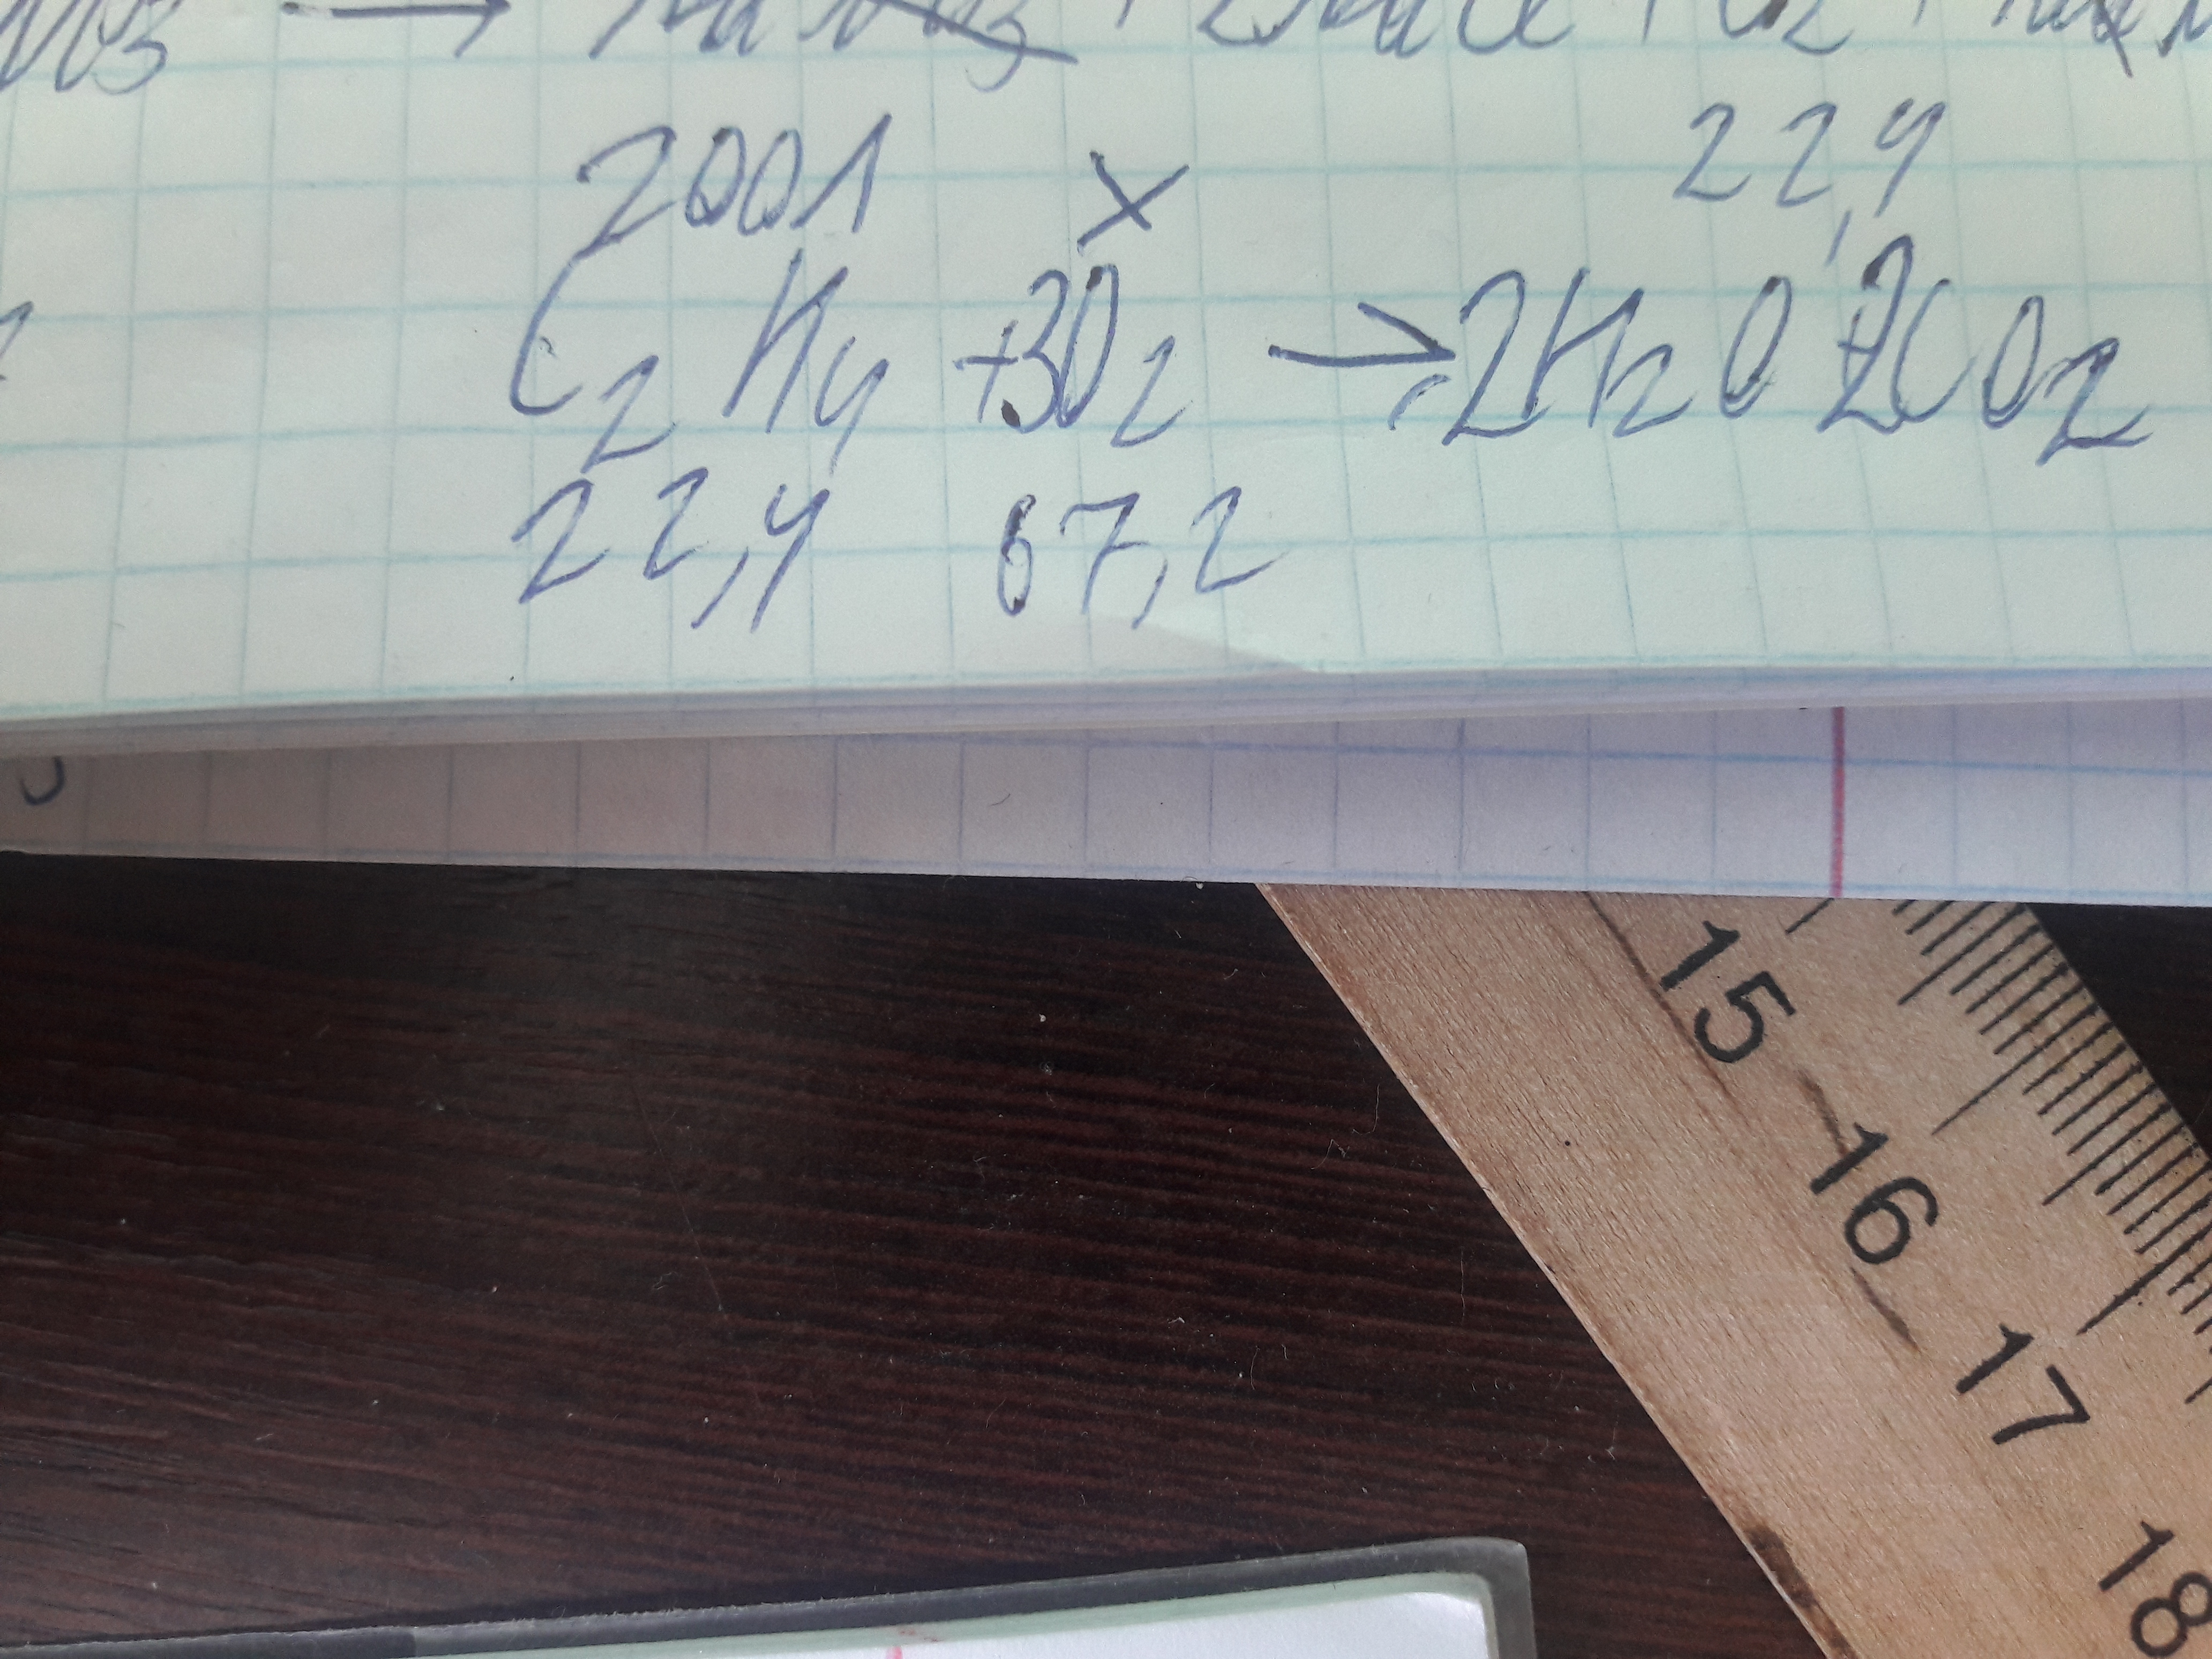 200л x 22,4
C₂H₄ + 3O₂ → 2H₂O + 2CO₂
22,4 67,2
15
16
17
18